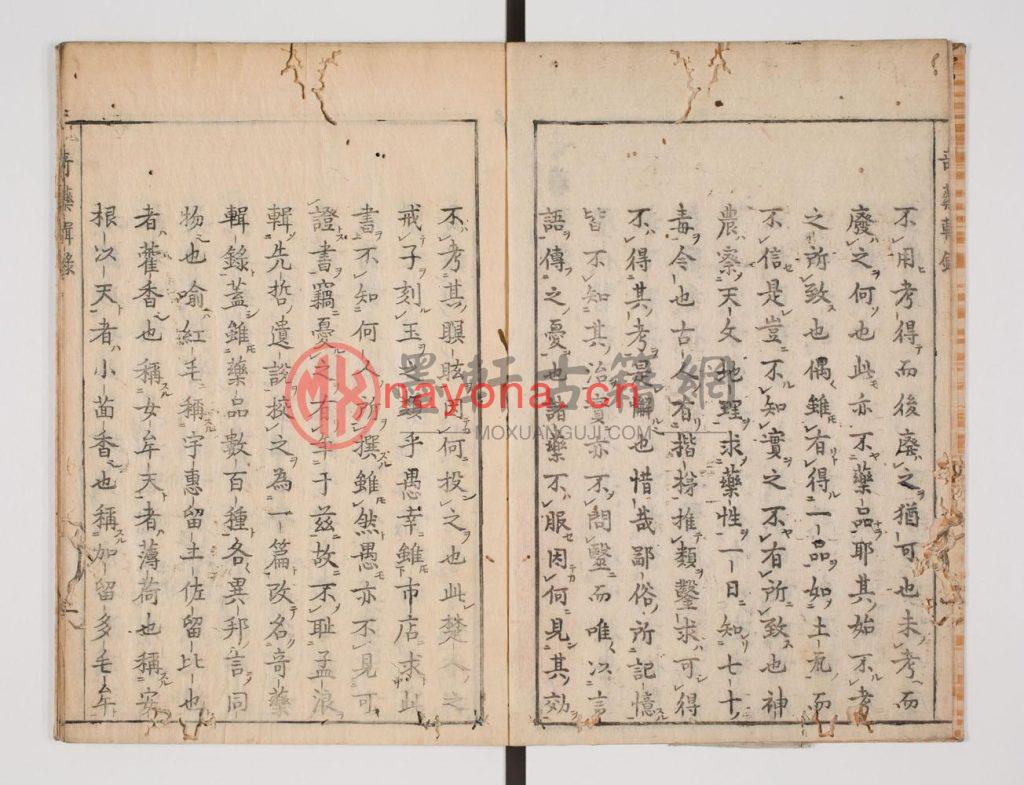 不用考得而後廢之猶可也未考而
廢之何也此亦不藥品耶其始不考
之所致也偶雖有得一品如土瓦而
不信是豈不知實之不有所致也神
農察天文地理求藥性一日知七十
毒今也古人有揩摸推類鑿求可得
不得其考是懶也惜哉鄙俗所記憶
皆不知其治實亦不問毉而唯以言
語傳之憂也諸藥不服因何見其効
不考其瞑眩因何投之也此楚人之
戒子刻玉
乎愚幸雖市店求此
書不知何人所撰雖然愚亦不見可
證書竊憂之有年于茲故不耻孟浪
輯先哲遺説校之為一篇改名竒藥
輯録蓋雖藥品數百種各異邦言同
物也喻紅毛稱字惠留土佐留比也
者藿香也稱女牟天者薄荷也稱安
根以天者小茴香也稱加留多毛牟
竒藥輯錄
墨軒古籍網
nayona.cn
MOXUANGUJI.COM